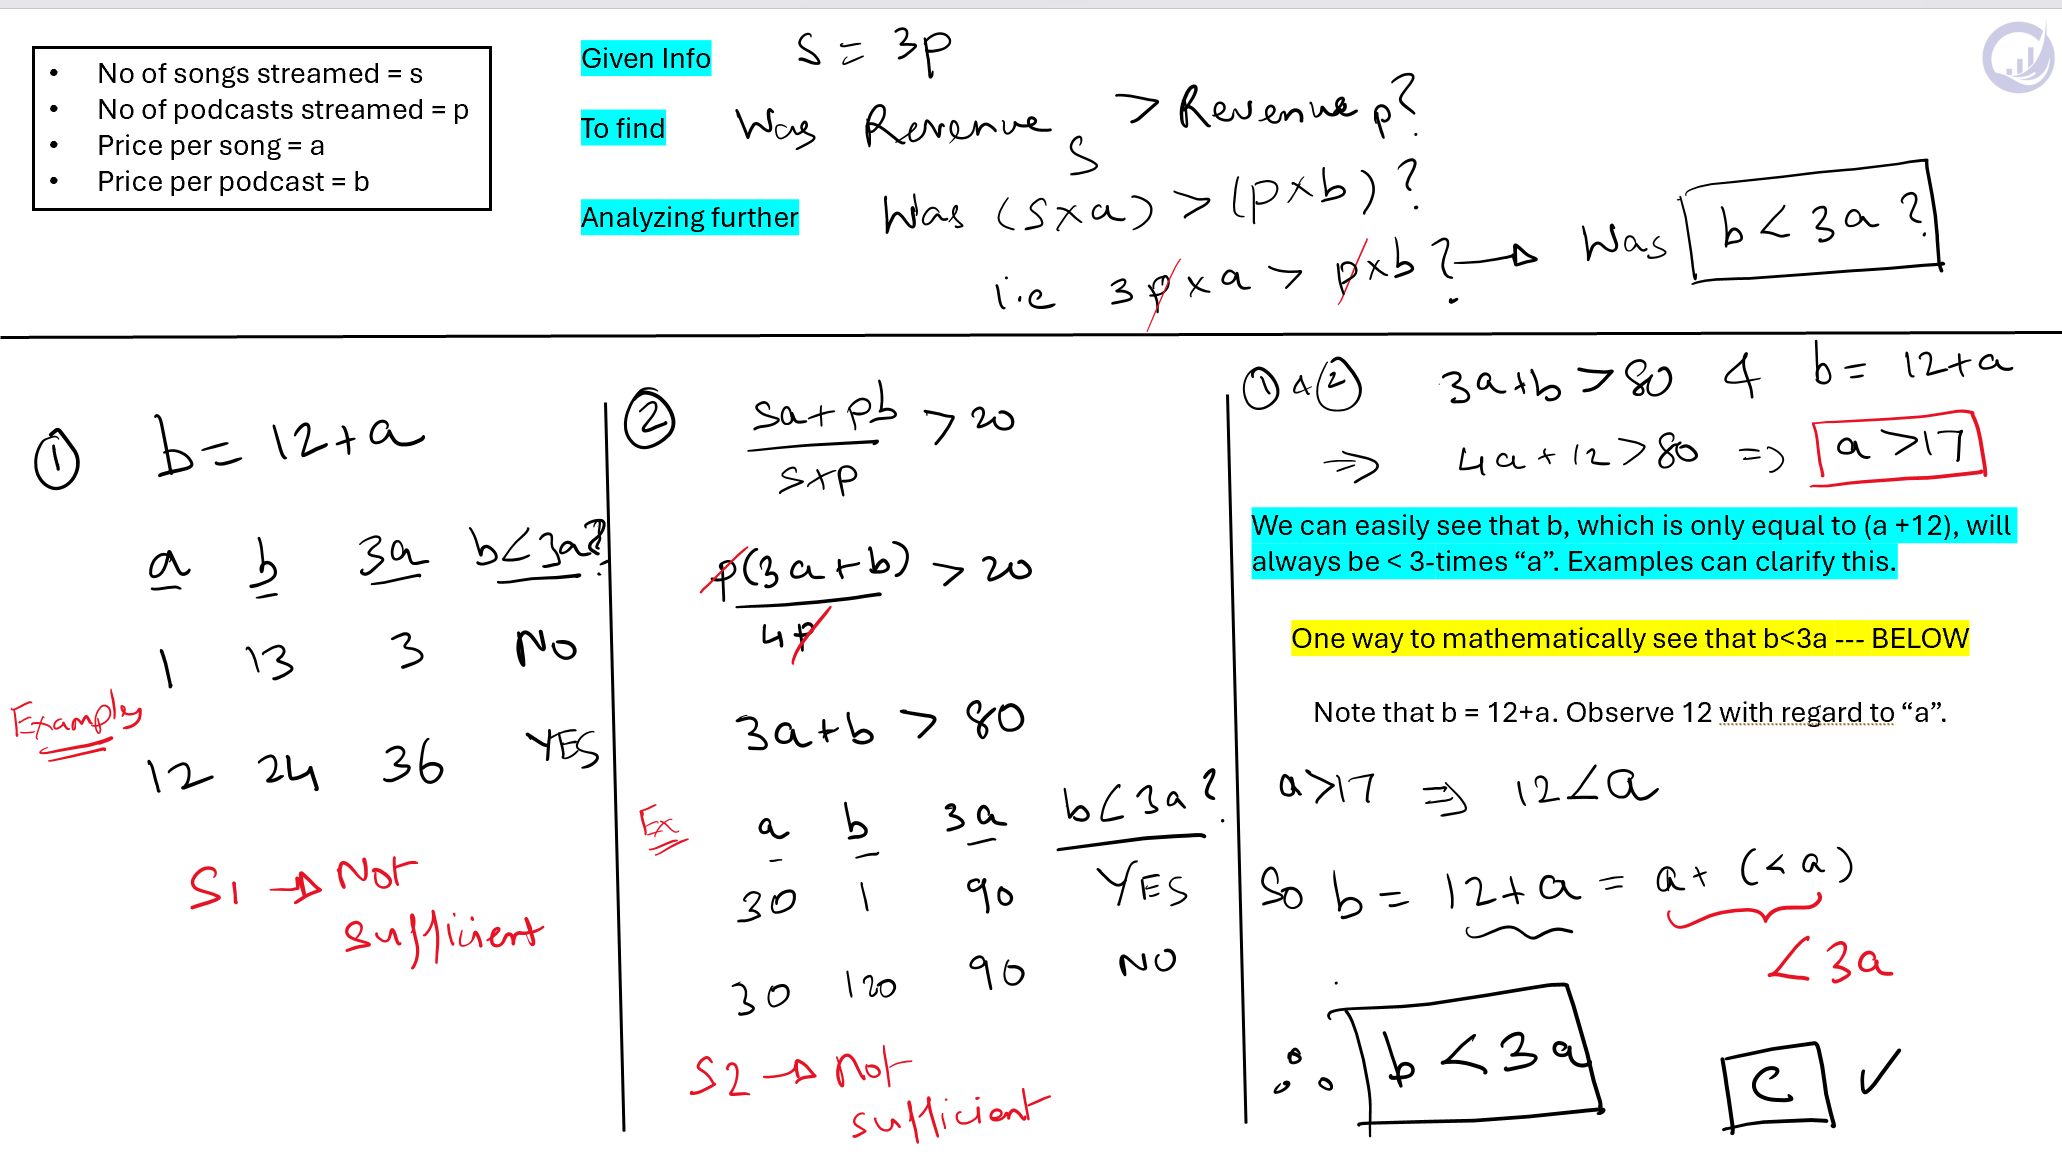 • No of songs streamed = s
• No of podcasts streamed = p
• Price per song = a
• Price per podcast = b
Given Info S = 3p
To find Was Revenue S > Revenue p?
Analyzing further Was (S×a) > (p×b)?
i.e 3p×a > p×b? → Was b < 3a?
① b = 12+a
a b 3a b<3a?
1 13 3 NO
Examples
12 24 36 YES
S1 → Not
sufficient
② Sa+pb / S+p > 20
p(3a+b) / 4p > 20
3a+b > 80
Ex a b 3a b<3a?
30 1 90 YES
30 120 90 NO
S2 → Not
sufficient
① & ② 3a+b > 80 & b = 12+a
⇒ 4a+12 > 80 ⇒ a > 17
We can easily see that b, which is only equal to (a +12), will
always be < 3-times “a”. Examples can clarify this.
One way to mathematically see that b<3a --- BELOW
Note that b = 12+a. Observe 12 with regard to “a”.
a>17 ⇒ 12<a
So b = 12+a = a+ (<a)
<3a
∴ b < 3a
C ✓